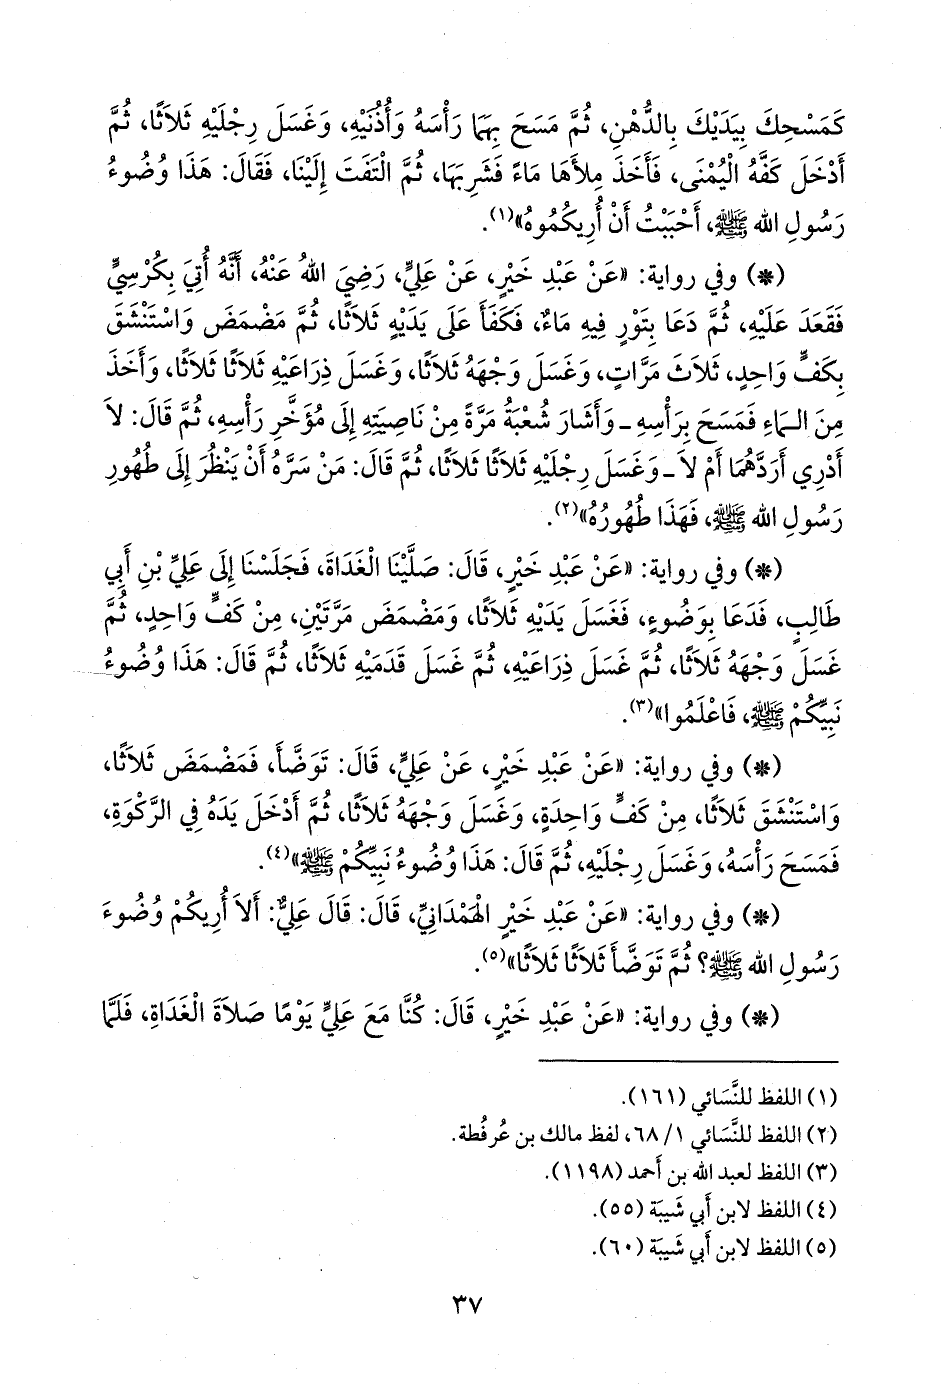 كَمَسْحِكَ بِيَدَيْكَ بِالدُّهْنِ، ثُمَّ مَسَحَ بِهِمَا رَأْسَهُ وَأُذُنَيْهِ، وَغَسَلَ رِجْلَيْهِ ثَلَاثًا، ثُمَّ
أَدْخَلَ كَفَّهُ الْيُمْنَى، فَأَخَذَ مِلأَهَا مَاءً فَشَرِبَهَا، ثُمَّ الْتَفَتَ إِلَيْنَا، فَقَالَ: هَذَا وُضُوءُ
رَسُولِ الله ﷺ، أَحْبَبْتُ أَنْ أُرِيكُمُوهُ»(١).
(*) وفي رواية: «عَنْ عَبْدِ خَيْرٍ، عَنْ عَلِيٍّ، رَضِيَ اللهُ عَنْهُ، أَنَّهُ أُتِيَ بِكُرْسِيٍّ
فَقَعَدَ عَلَيْهِ، ثُمَّ دَعَا بِتَوْرٍ فِيهِ مَاءٌ، فَكَفَأَ عَلَى يَدَيْهِ ثَلَاثًا، ثُمَّ مَضْمَضَ وَاسْتَنْشَقَ
بِكَفٍّ وَاحِدٍ، ثَلَاثَ مَرَّاتٍ، وَغَسَلَ وَجْهَهُ ثَلَاثًا، وَغَسَلَ ذِرَاعَيْهِ ثَلَاثًا ثَلَاثًا، وَأَخَذَ
مِنَ الـمَاءِ فَمَسَحَ بِرَأْسِهِ ـ وَأَشَارَ شُعْبَةُ مَرَّةً مِنْ نَاصِيَتِهِ إِلَى مُؤَخَّرِ رَأْسِهِ، ثُمَّ قَالَ: لاَ
أَدْرِي أَرَدَّهُمَا أَمْ لاَ ـ وَغَسَلَ رِجْلَيْهِ ثَلَاثًا ثَلَاثًا، ثُمَّ قَالَ: مَنْ سَرَّهُ أَنْ يَنْظُرَ إِلَى طُهُورِ
رَسُولِ الله ﷺ، فَهَذَا طُهُورُهُ»(٢).
(*) وفي رواية: «عَنْ عَبْدِ خَيْرٍ، قَالَ: صَلَّيْنَا الْغَدَاةَ، فَجَلَسْنَا إِلَى عَلِيِّ بْنِ أَبِي
طَالِبٍ، فَدَعَا بِوَضُوءٍ، فَغَسَلَ يَدَيْهِ ثَلَاثًا، وَمَضْمَضَ مَرَّتَيْنِ، مِنْ كَفٍّ وَاحِدٍ، ثُمَّ
غَسَلَ وَجْهَهُ ثَلَاثًا، ثُمَّ غَسَلَ ذِرَاعَيْهِ، ثُمَّ غَسَلَ قَدَمَيْهِ ثَلَاثًا، ثُمَّ قَالَ: هَذَا وُضُوءُ
نَبِيِّكُمْ ﷺ، فَاعْلَمُوا»(٣).
(*) وفي رواية: «عَنْ عَبْدِ خَيْرٍ، عَنْ عَلِيٍّ، قَالَ: تَوَضَّأَ، فَمَضْمَضَ ثَلَاثًا،
وَاسْتَنْشَقَ ثَلَاثًا، مِنْ كَفٍّ وَاحِدَةٍ، وَغَسَلَ وَجْهَهُ ثَلَاثًا، ثُمَّ أَدْخَلَ يَدَهُ فِي الرَّكْوَةِ،
فَمَسَحَ رَأْسَهُ، وَغَسَلَ رِجْلَيْهِ، ثُمَّ قَالَ: هَذَا وُضُوءُ نَبِيِّكُمْ ﷺ»(٤).
(*) وفي رواية: «عَنْ عَبْدِ خَيْرٍ الْهَمْدَانِيِّ، قَالَ: قَالَ عَلِيٌّ: أَلاَ أُرِيكُمْ وُضُوءَ
رَسُولِ الله ﷺ؟ ثُمَّ تَوَضَّأَ ثَلَاثًا ثَلَاثًا»(٥).
(*) وفي رواية: «عَنْ عَبْدِ خَيْرٍ، قَالَ: كُنَّا مَعَ عَلِيٍّ يَوْمًا صَلاَةَ الْغَدَاةِ، فَلَمَّا
(١) اللفظ للنَّسَائي (١٦١).
(٢) اللفظ للنَّسَائي ١/ ٦٨، لفظ مالك بن عُرفُطة.
(٣) اللفظ لعبد الله بن أَحمد (١١٩٨).
(٤) اللفظ لابن أَبي شَيبَة (٥٥).
(٥) اللفظ لابن أَبي شَيبَة (٦٠).
٣٧